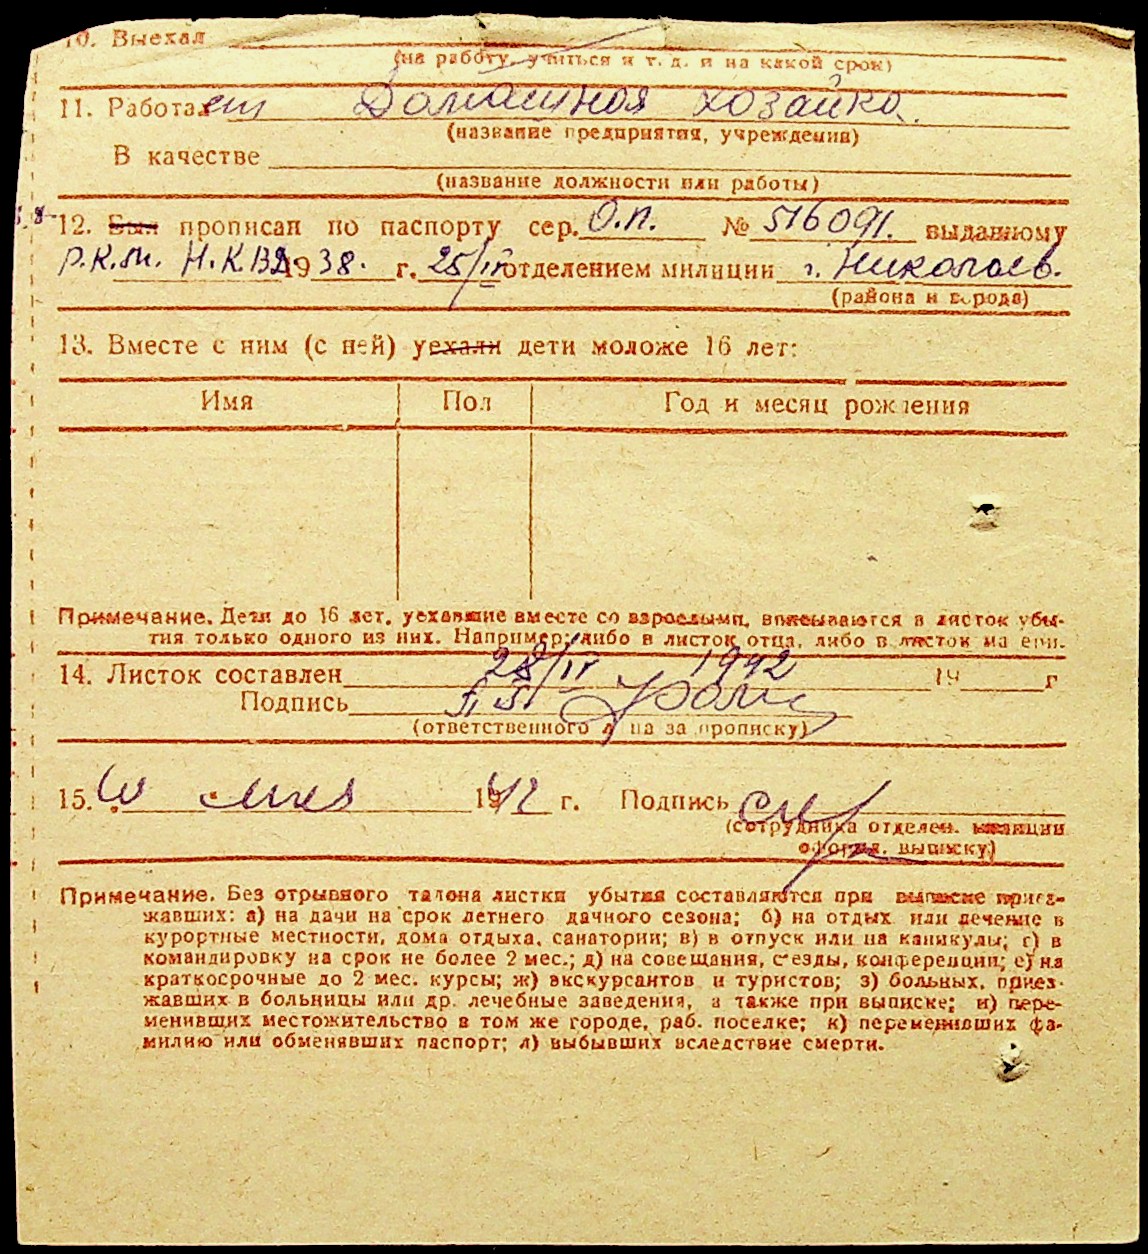 10. Выехал
(на работу, учиться и т. д. и на какой срок)
11. Работает Домашная хозайка.
(название предприятия, учреждения)
В качестве
(название должности или работы)
12. Был прописан по паспорту сер. О.П. № 516091. выданному
Р.К.М. Н.К.ВД 1938. г. 25/IV отделением милиции г. Николаев.
(района и города)
13. Вместе с ним (с ней) уехали дети моложе 16 лет:
Имя Пол Год и месяц рождения
Примечание. Дети до 16 лет, уехавшие вместе со взрослыми, вписываются в листок убы-
тия только одного из них. Например: либо в листок отца, либо в листок матери.
14. Листок составлен 28/IV 1942 19 г
Подпись
(ответственного лица за прописку)
15. мая 1942 г. Подпись
(сотрудника отделен. милиции
оформл. выписку)
Примечание. Без отрывного талона листки убытия составляются при выписке приез-
жавших: а) на дачи на срок летнего дачного сезона; б) на отдых или лечение в
курортные местности, дома отдыха, санатории; в) в отпуск или на каникулы; г) в
командировку на срок не более 2 мес.; д) на совещания, с'езды, конференции; е) на
краткосрочные до 2 мес. курсы; ж) экскурсантов и туристов; з) больных, приез-
жавших в больницы или др. лечебные заведения, а также при выписке; и) пере-
менивших местожительство в том же городе, раб. поселке; к) переменивших фа-
милию или обменявших паспорт; л) выбывших вследствие смерти.